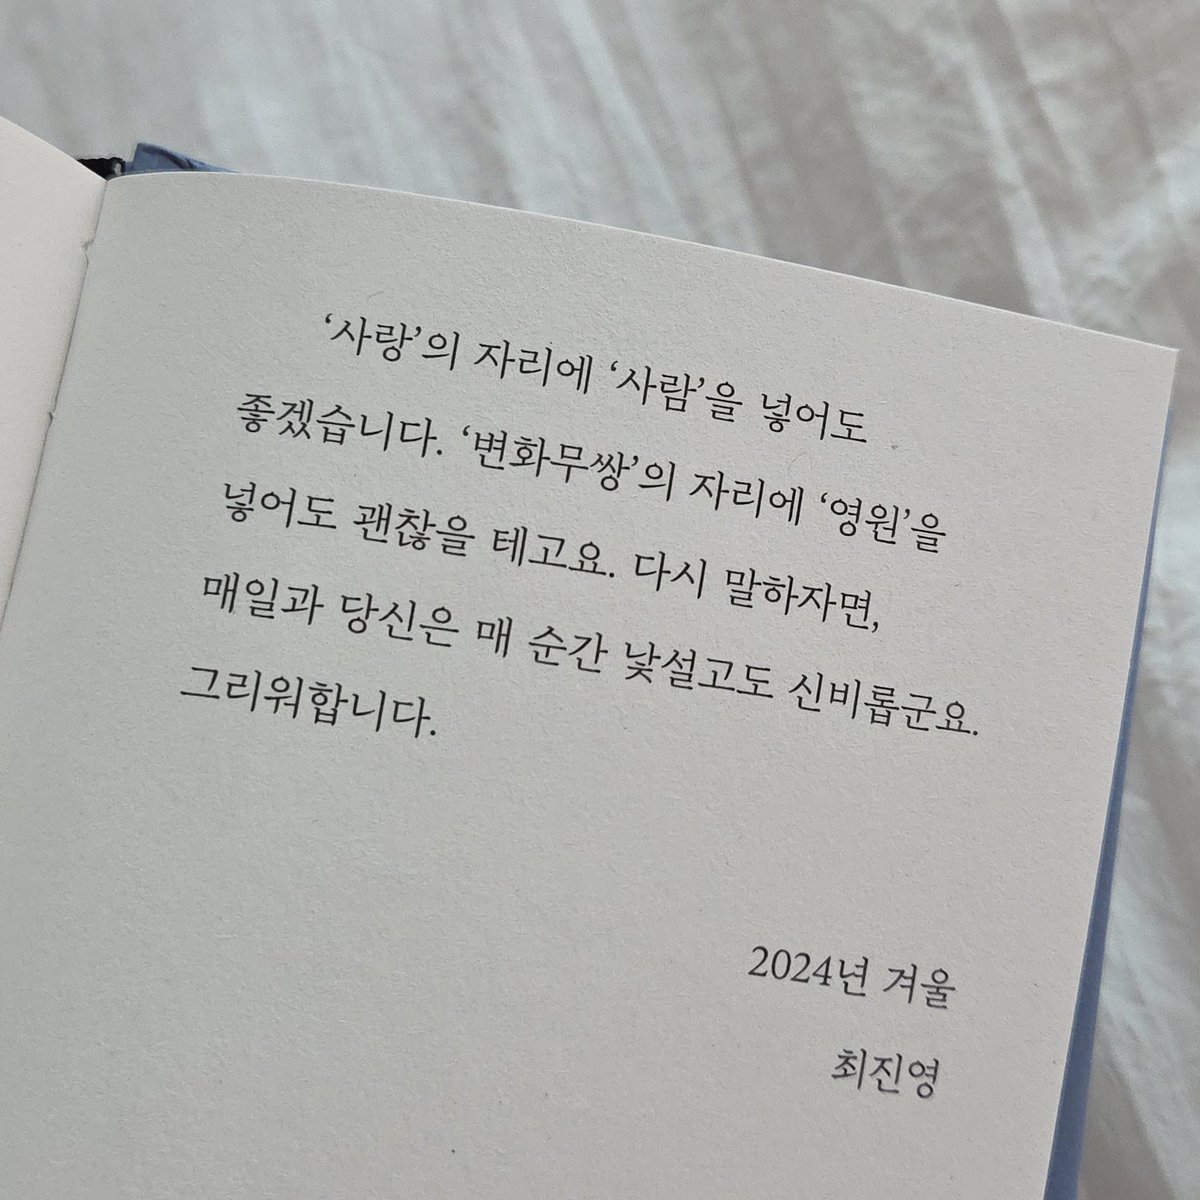 ‘사랑’의 자리에 ‘사람’을 넣어도
좋겠습니다. ‘변화무쌍’의 자리에 ‘영원’을
넣어도 괜찮을 테고요. 다시 말하자면,
매일과 당신은 매 순간 낯설고도 신비롭군요.
그리워합니다.
2024년 겨울
최진영